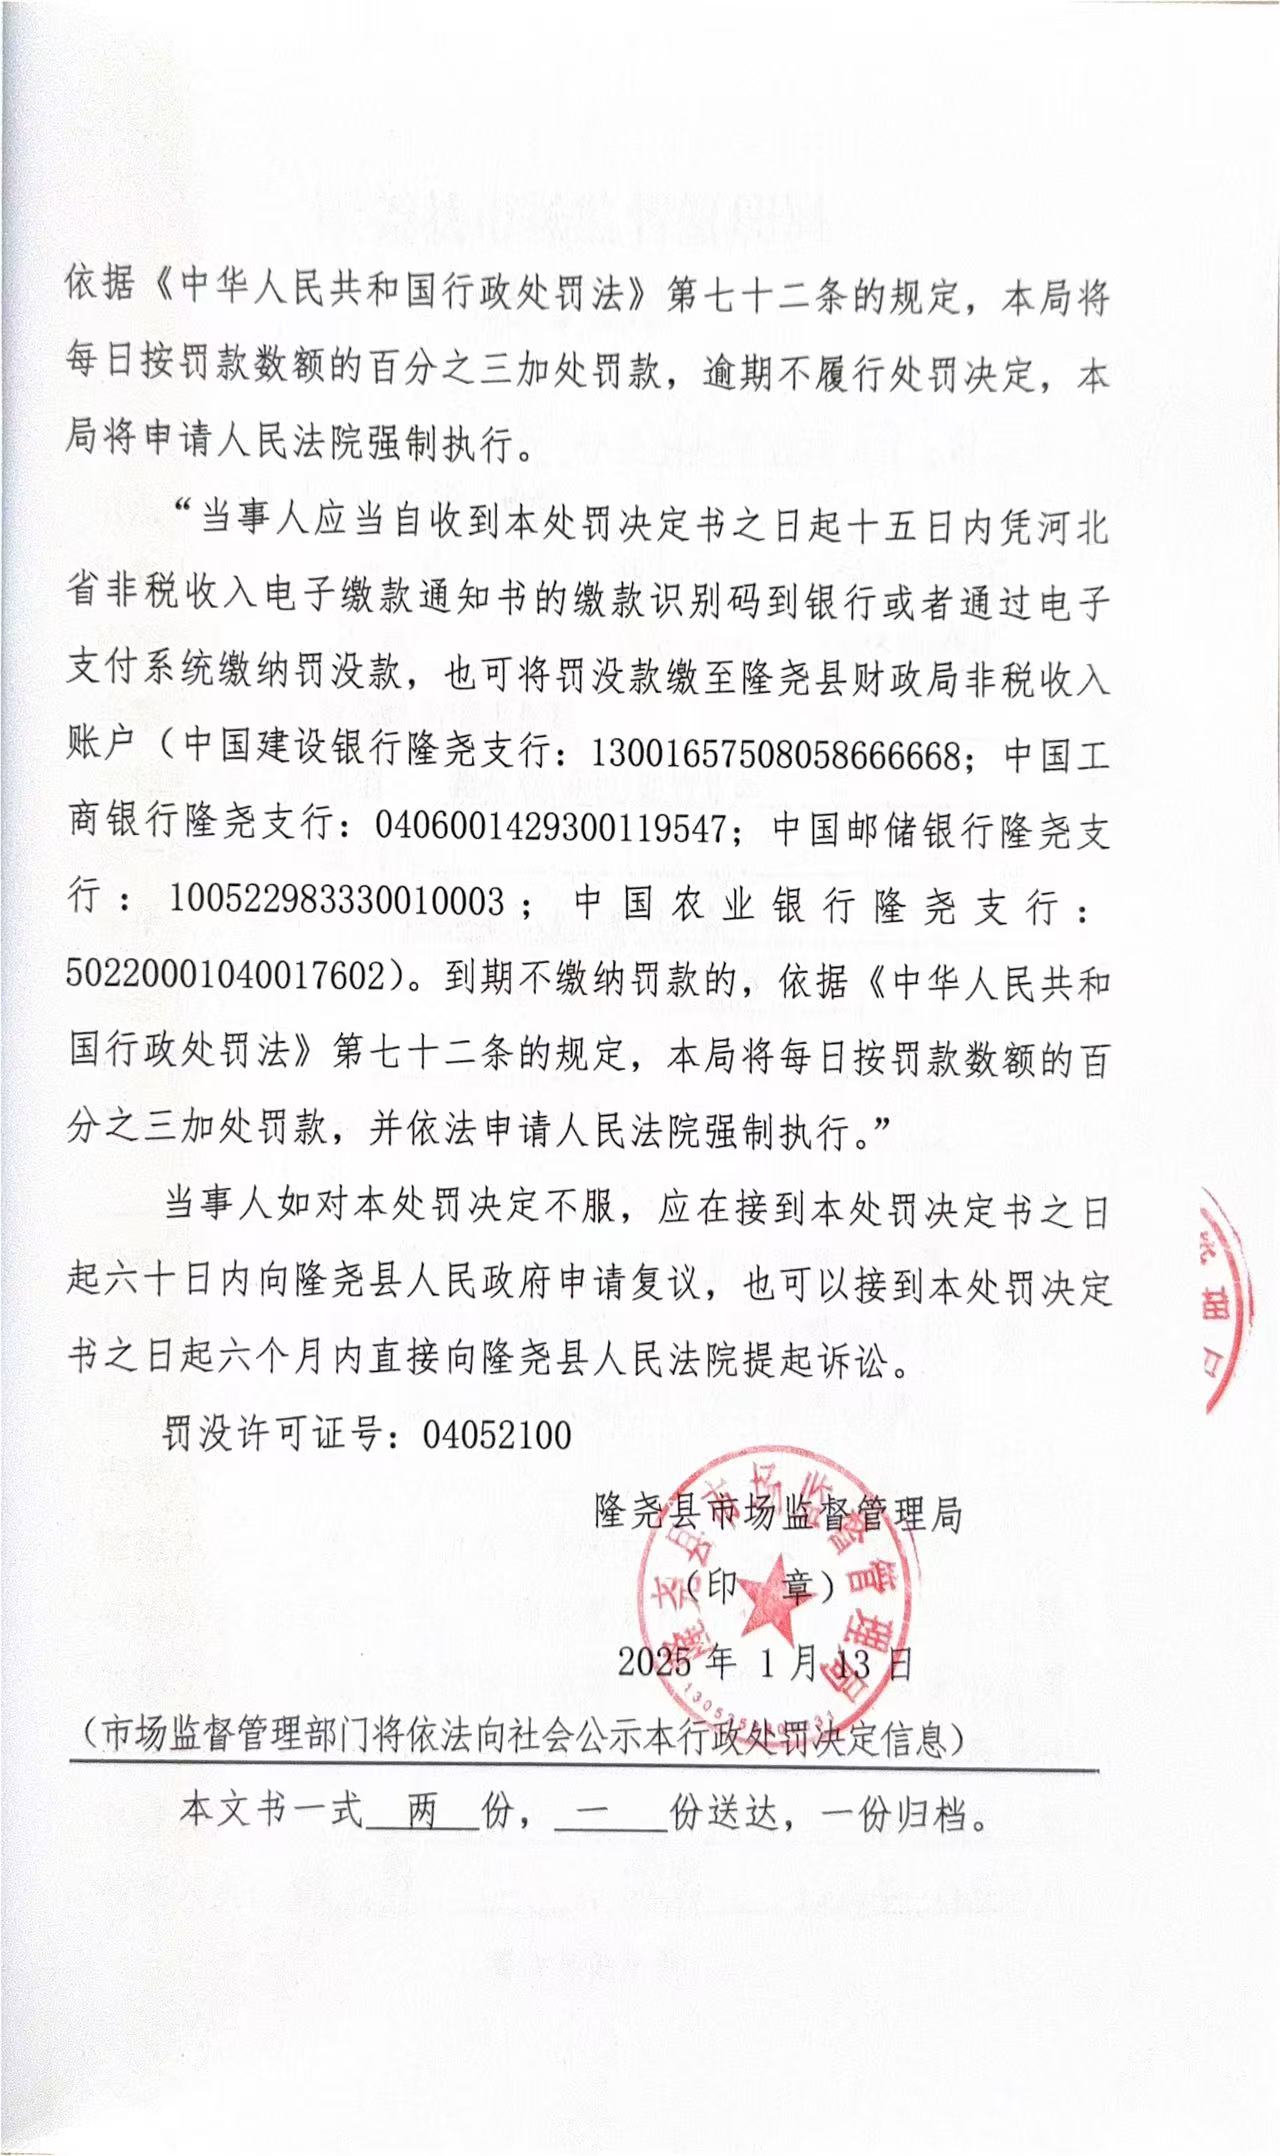 依据《中华人民共和国行政处罚法》第七十二条的规定，本局将
每日按罚款数额的百分之三加处罚款，逾期不履行处罚决定，本
局将申请人民法院强制执行。
“当事人应当自收到本处罚决定书之日起十五日内凭河北
省非税收入电子缴款通知书的缴款识别码到银行或者通过电子
支付系统缴纳罚没款，也可将罚没款缴至隆尧县财政局非税收入
账户（中国建设银行隆尧支行：13001657508058666668；中国工
商银行隆尧支行：0406001429300119547；中国邮储银行隆尧支
行：100522983330010003；中国农业银行隆尧支行：
50220001040017602）。到期不缴纳罚款的，依据《中华人民共和
国行政处罚法》第七十二条的规定，本局将每日按罚款数额的百
分之三加处罚款，并依法申请人民法院强制执行。”
当事人如对本处罚决定不服，应在接到本处罚决定书之日
起六十日内向隆尧县人民政府申请复议，也可以接到本处罚决定
书之日起六个月内直接向隆尧县人民法院提起诉讼。
罚没许可证号：04052100
隆尧县市场监督管理局
（印 章）
隆尧县市场监督管理局
2025 年 1 月 13 日
（市场监督管理部门将依法向社会公示本行政处罚决定信息）
本文书一式 两 份， 一 份送达，一份归档。